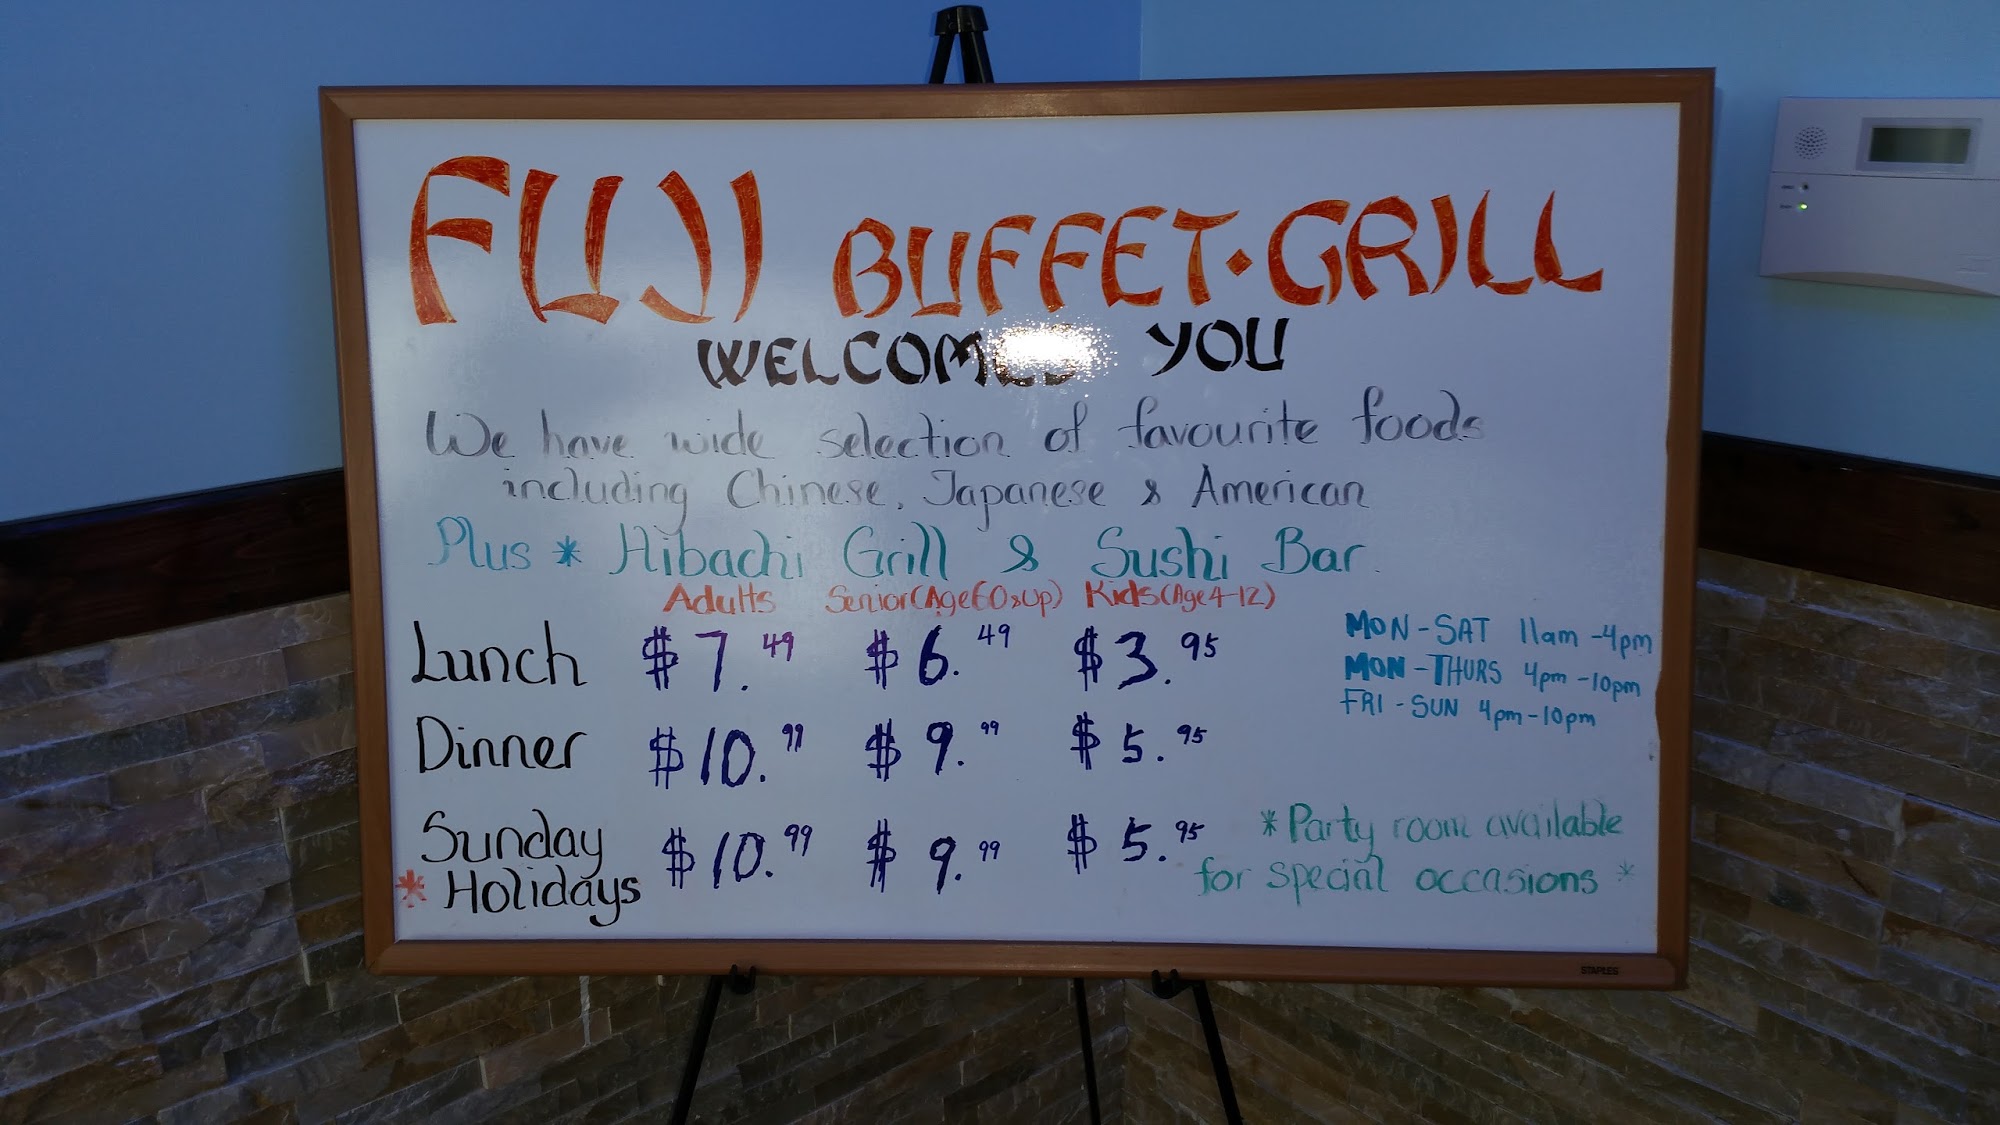 FUJI BUFFET·GRILL
WELCOMES YOU
We have wide selection of favourite foods
including Chinese, Japanese & American
Plus * Hibachi Grill & Sushi Bar.
Adults Senior(Age60&Up) Kids(Age4-12)
Lunch $7.49 $6.49 $3.95
Dinner $10.99 $9.99 $5.95
Sunday
* Holidays $10.99 $9.99 $5.95
MON-SAT 11am-4pm
MON-THURS 4pm-10pm
FRI-SUN 4pm-10pm
*Party room available
for special occasions *
STAPLES